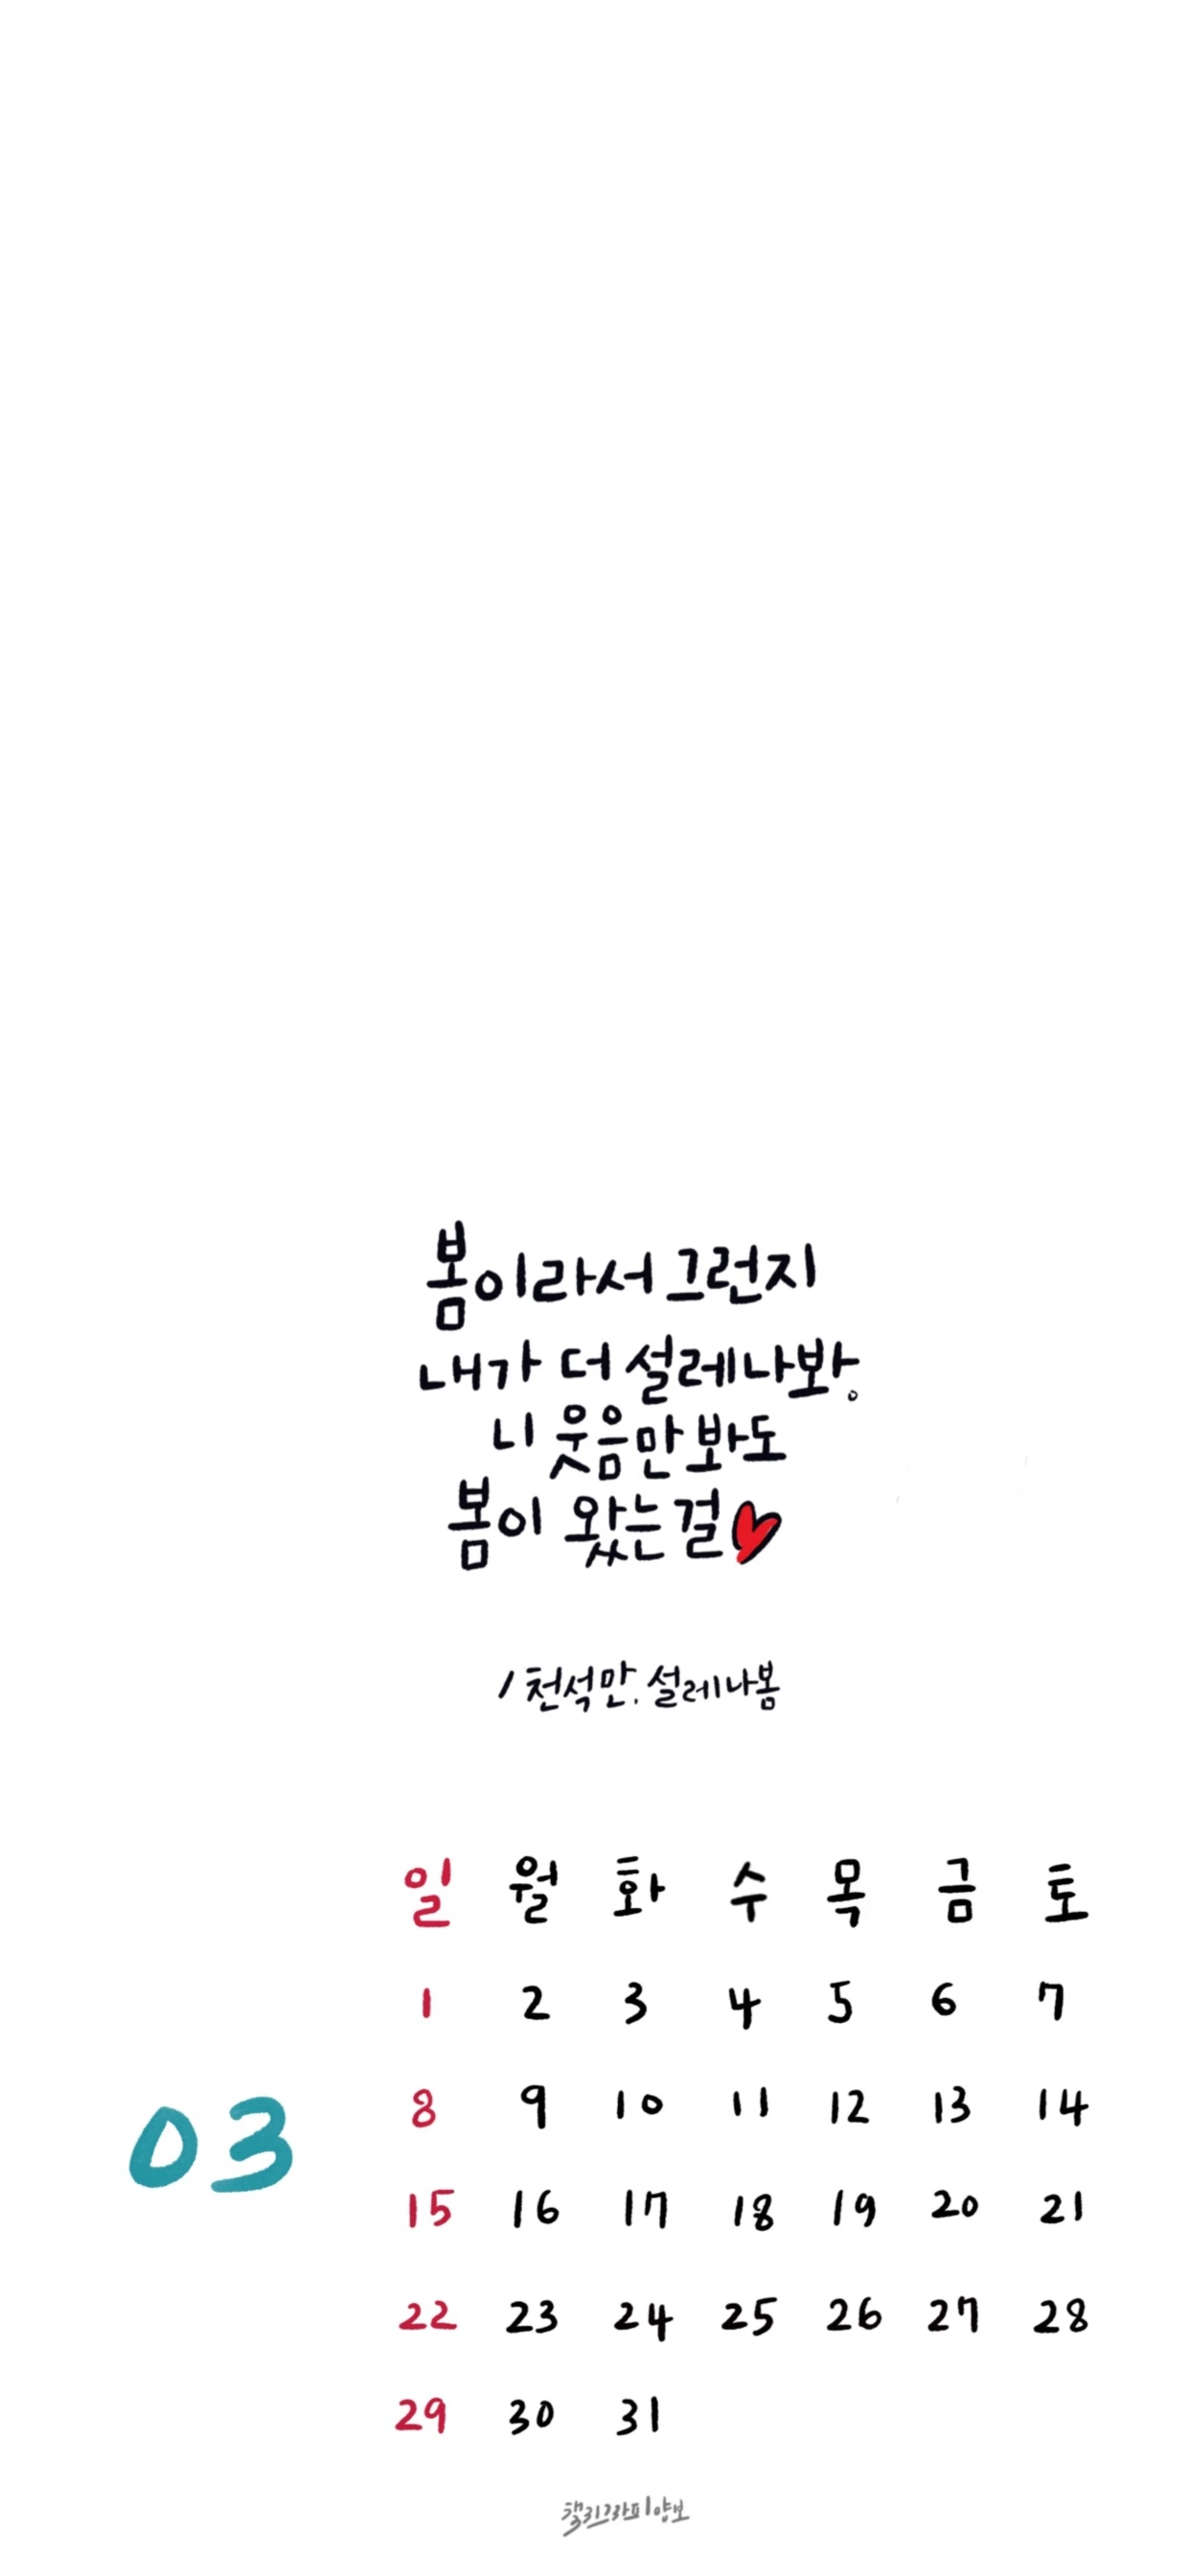 봄이라서 그런지
내가 더 설레나봐.
니 웃음만 봐도
봄이 왔는걸
/ 천석만. 설레나봄
일 월 화 수 목 금 토
1 2 3 4 5 6 7
8 9 10 11 12 13 14
03
15 16 17 18 19 20 21
22 23 24 25 26 27 28
29 30 31
캘리그라피양보